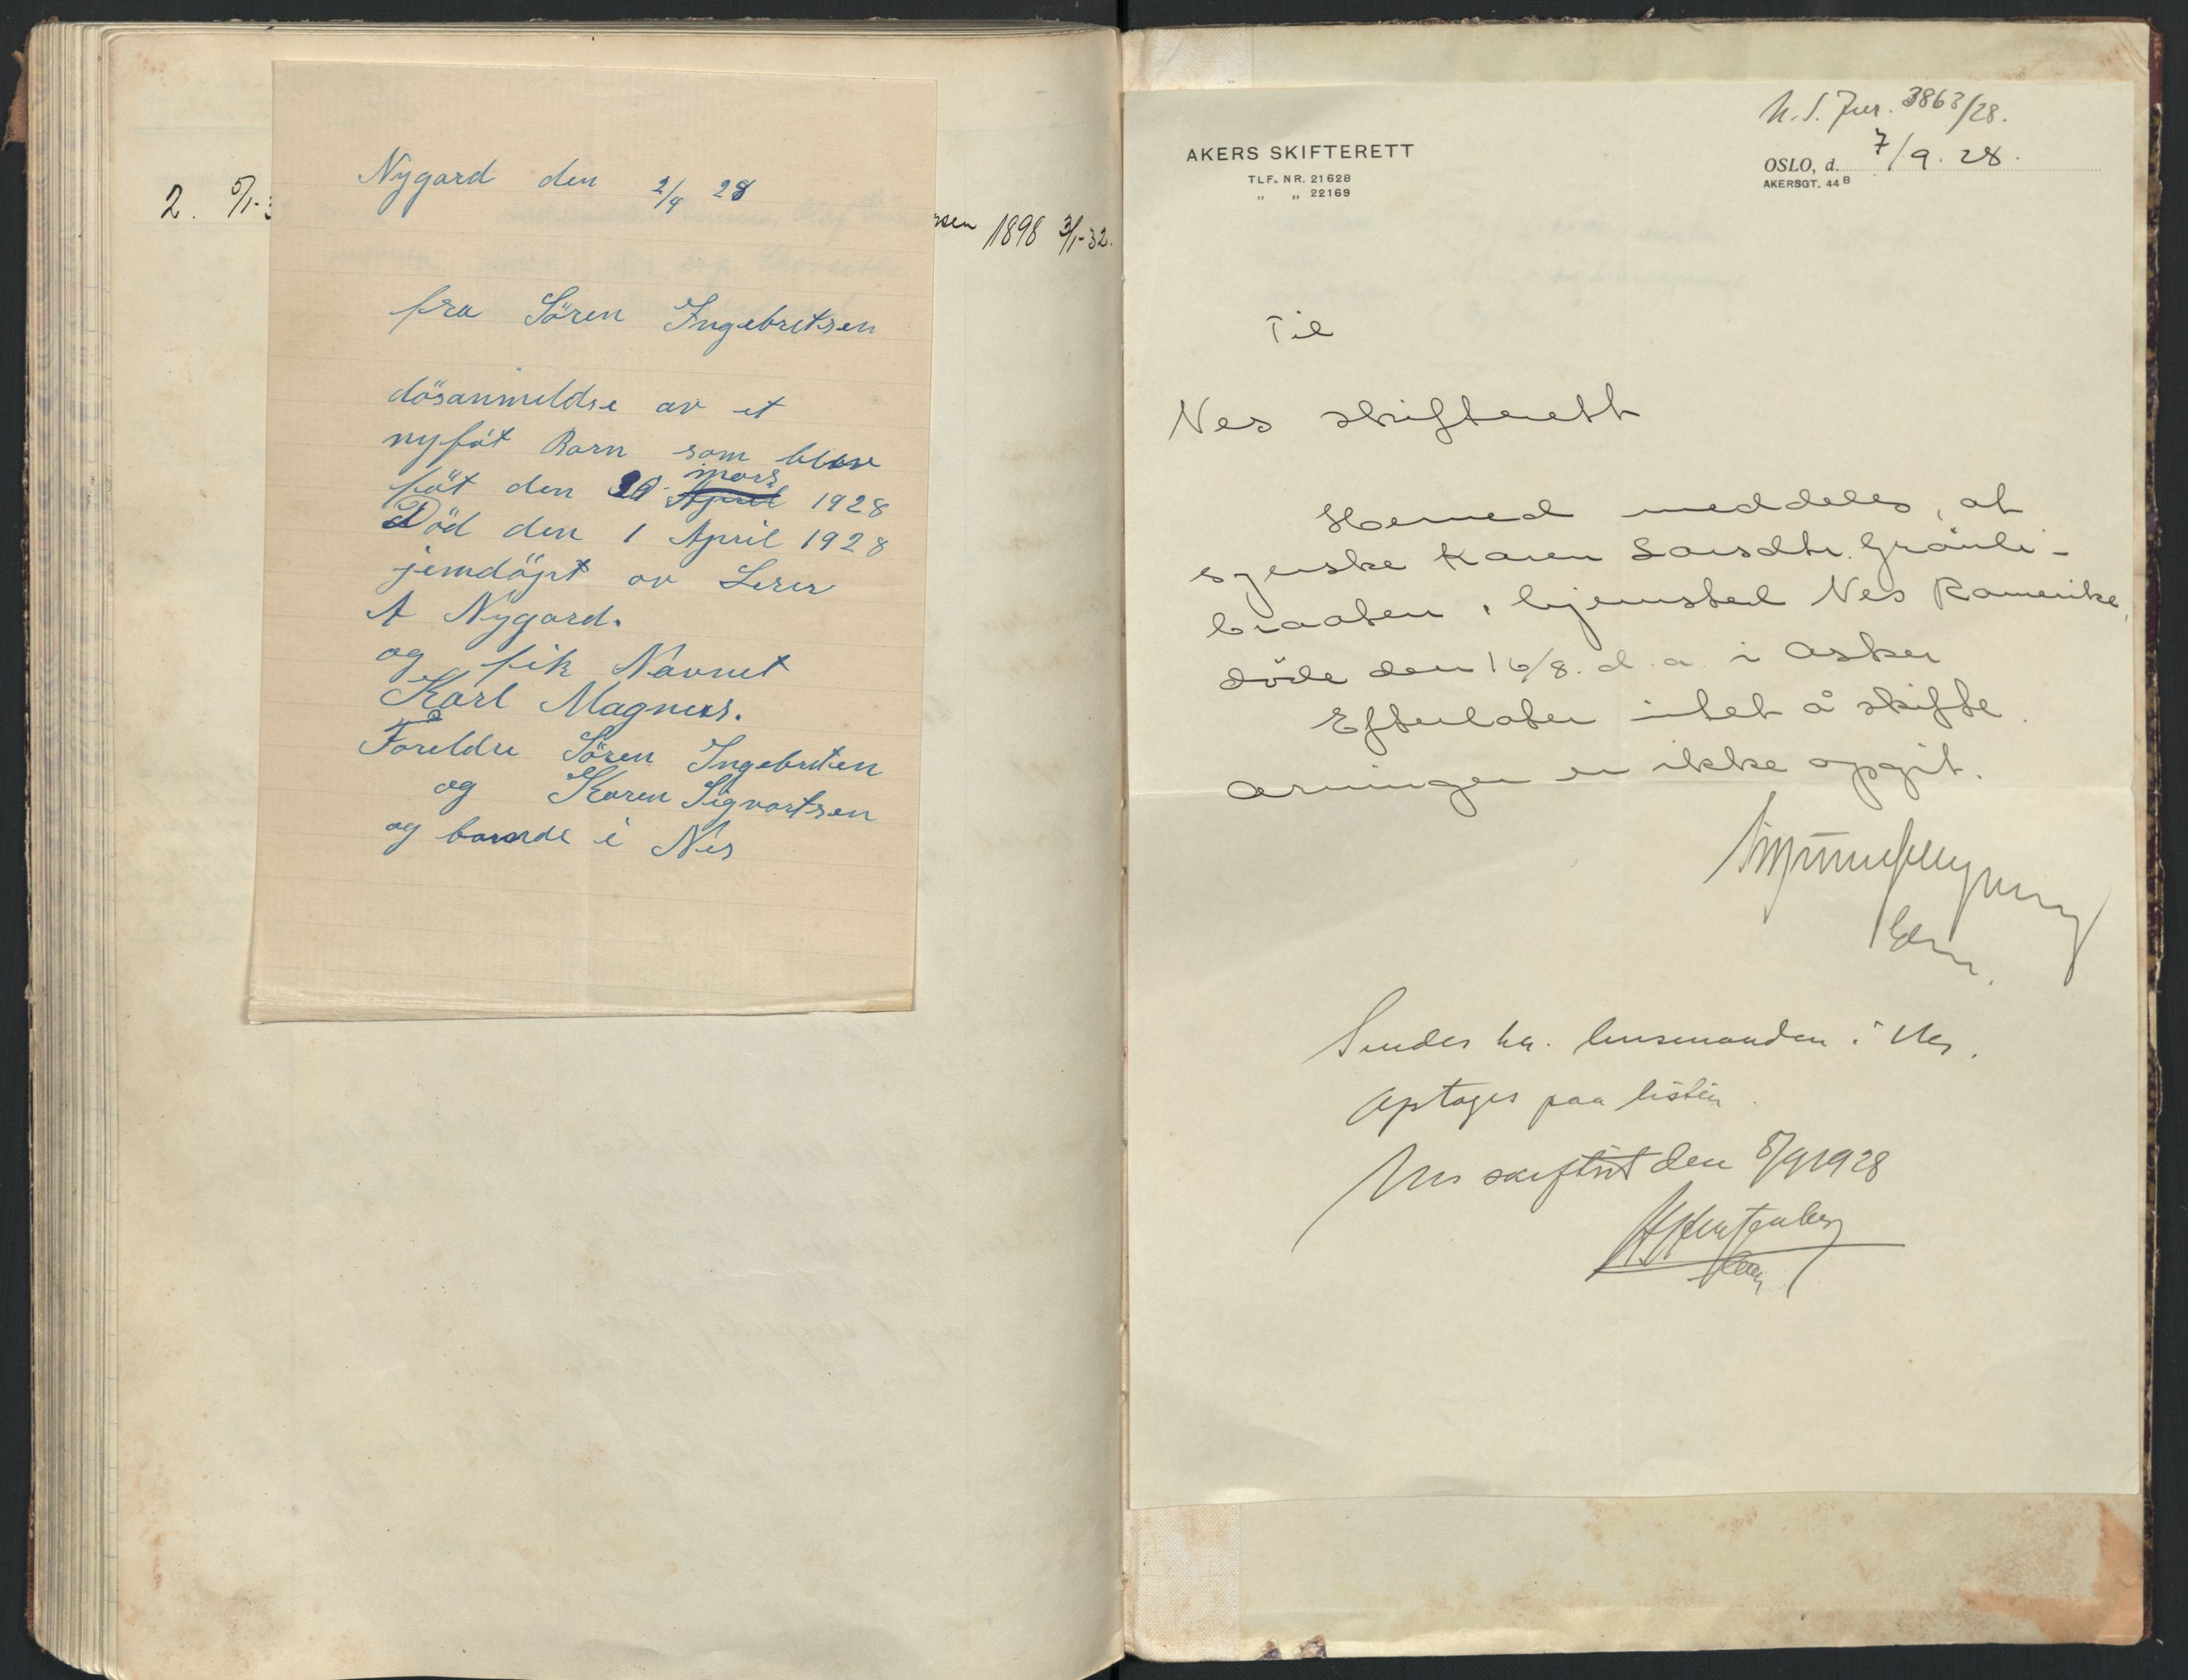 2. 5/1-3
rsen 1898 3/1-32.
Nygard den 2/4 28
fra Sören Ingebretsen
dösanmeldse av et
nyföt Barn som blev
föt den 30. mars April 1928
Död den 1 April 1928
jemdöpt av Lerer
A Nygard.
og fik Navnet
Karl Magnus.
Foreldre Sören Ingebretsen
og Karen Sigvartsen
og boende i Nes
N. S. Jur. 3863/28.
AKERS SKIFTERETT
TLF. NR. 21628
" " 22169
OSLO, d. 7/9. 28.
AKERSGT. 44 B
Til
Nes skifterett
Herved meddeles, at
syerske Karen Larsdtr. Grönli-
braaten, hjemsted Nes Romerike,
döde den 16/8. d. a. i Asker
Efterlater intet å skifte.
Arvinger er ikke opgit.
Sendes hr. lensmanden i Nes.
Optages paa listen.
Nes skifteret den 8/9 1928